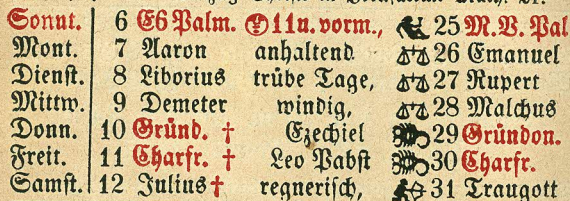 Sonnt. 6 E6 Palm. 11 u. vorm., 25 M. V. Pal
Mont. 7 Aaron anhaltend 26 Emanuel
Dienst. 8 Liborius trübe Tage, 27 Rupert
Mittw. 9 Demeter windig, 28 Malchus
Donn. 10 Gründ. † Ezechiel 29 Gründon.
Freit. 11 Charfr. † Leo Pabst 30 Charfr.
Samst. 12 Julius † regnerisch, 31 Traugott